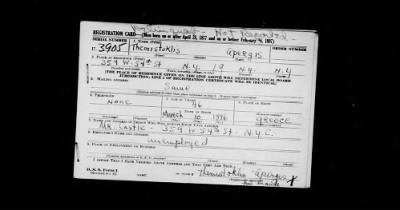 Delinquent - Not Reported -
REGISTRATION CARD—(Men born on or after April 28, 1877 and on or before February 16, 1897)
SERIAL NUMBER 1. NAME (Print) ORDER NUMBER
U. 3905 Themistoklis Apergis
2. PLACE OF RESIDENCE (Print)
359 W. 54th St N.Y. 19 N.Y. N.Y
[THE PLACE OF RESIDENCE GIVEN ON THE LINE ABOVE WILL DETERMINE LOCAL BOARD
JURISDICTION; LINE 2 OF REGISTRATION CERTIFICATE WILL BE IDENTICAL]
3. MAILING ADDRESS
Same
4. TELEPHONE 5. AGE IN YEARS 6. PLACE OF BIRTH
None 46
DATE OF BIRTH
March 10 1896 Greece
Mr Castle - 359 W 54th St. N.Y.C.
8. EMPLOYER'S NAME AND ADDRESS
Unemployed
9. PLACE OF EMPLOYMENT OR BUSINESS
I AFFIRM THAT I HAVE VERIFIED ABOVE ANSWERS AND THAT THEY ARE TRUE.
D. S. S. Form 1
Themistoklis Apergis